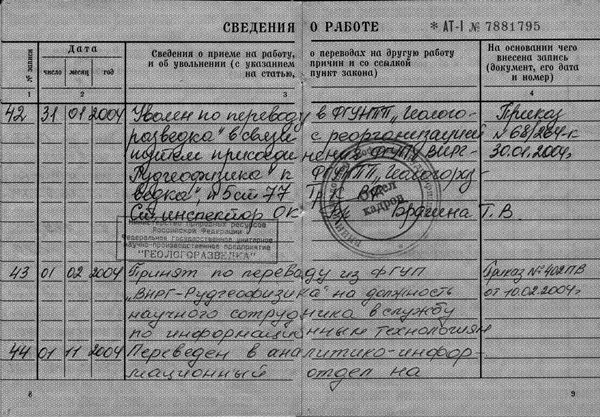 СВЕДЕНИЯ О РАБОТЕ * АТ-I № 7881795
№ записи
Дата
число месяц год
Сведения о приеме на работу, о переводах на другую работу
и об увольнении (с указанием причин и со ссылкой
на статью, пункт закона)
На основании чего
внесена запись
(документ, его дата
и номер)
1 2 3 4
42 31 01 2004 Уволен по переводу в ФГУНПП „Геолого- Приказ
разведка" в связи с реорганизацией №68/264-к
путем присоединения ФГУП „ВИРГ- 30.01.2004г
Рудгеофизика" к ФГУНПП „Геологораз-
ведка", п 5 ст 77 ТК РФ
Ст. инспектор ОК Т.В.
Отдел кадров
Министерство природных ресурсов
Российской Федерации
Федеральное государственное унитарное
научно-производственное предприятие
"ГЕОЛОГОРАЗВЕДКА"
43 01 02 2004 Принят по переводу из ФГУП Приказ №402ПВ
„ВИРГ-Рудгеофизика" на должность от 10.02.2004г
научного сотрудника в службу
по информационным технологиям
44 01 11 2004 Переведен в аналитико-инфор-
мационный отдел на
8 9